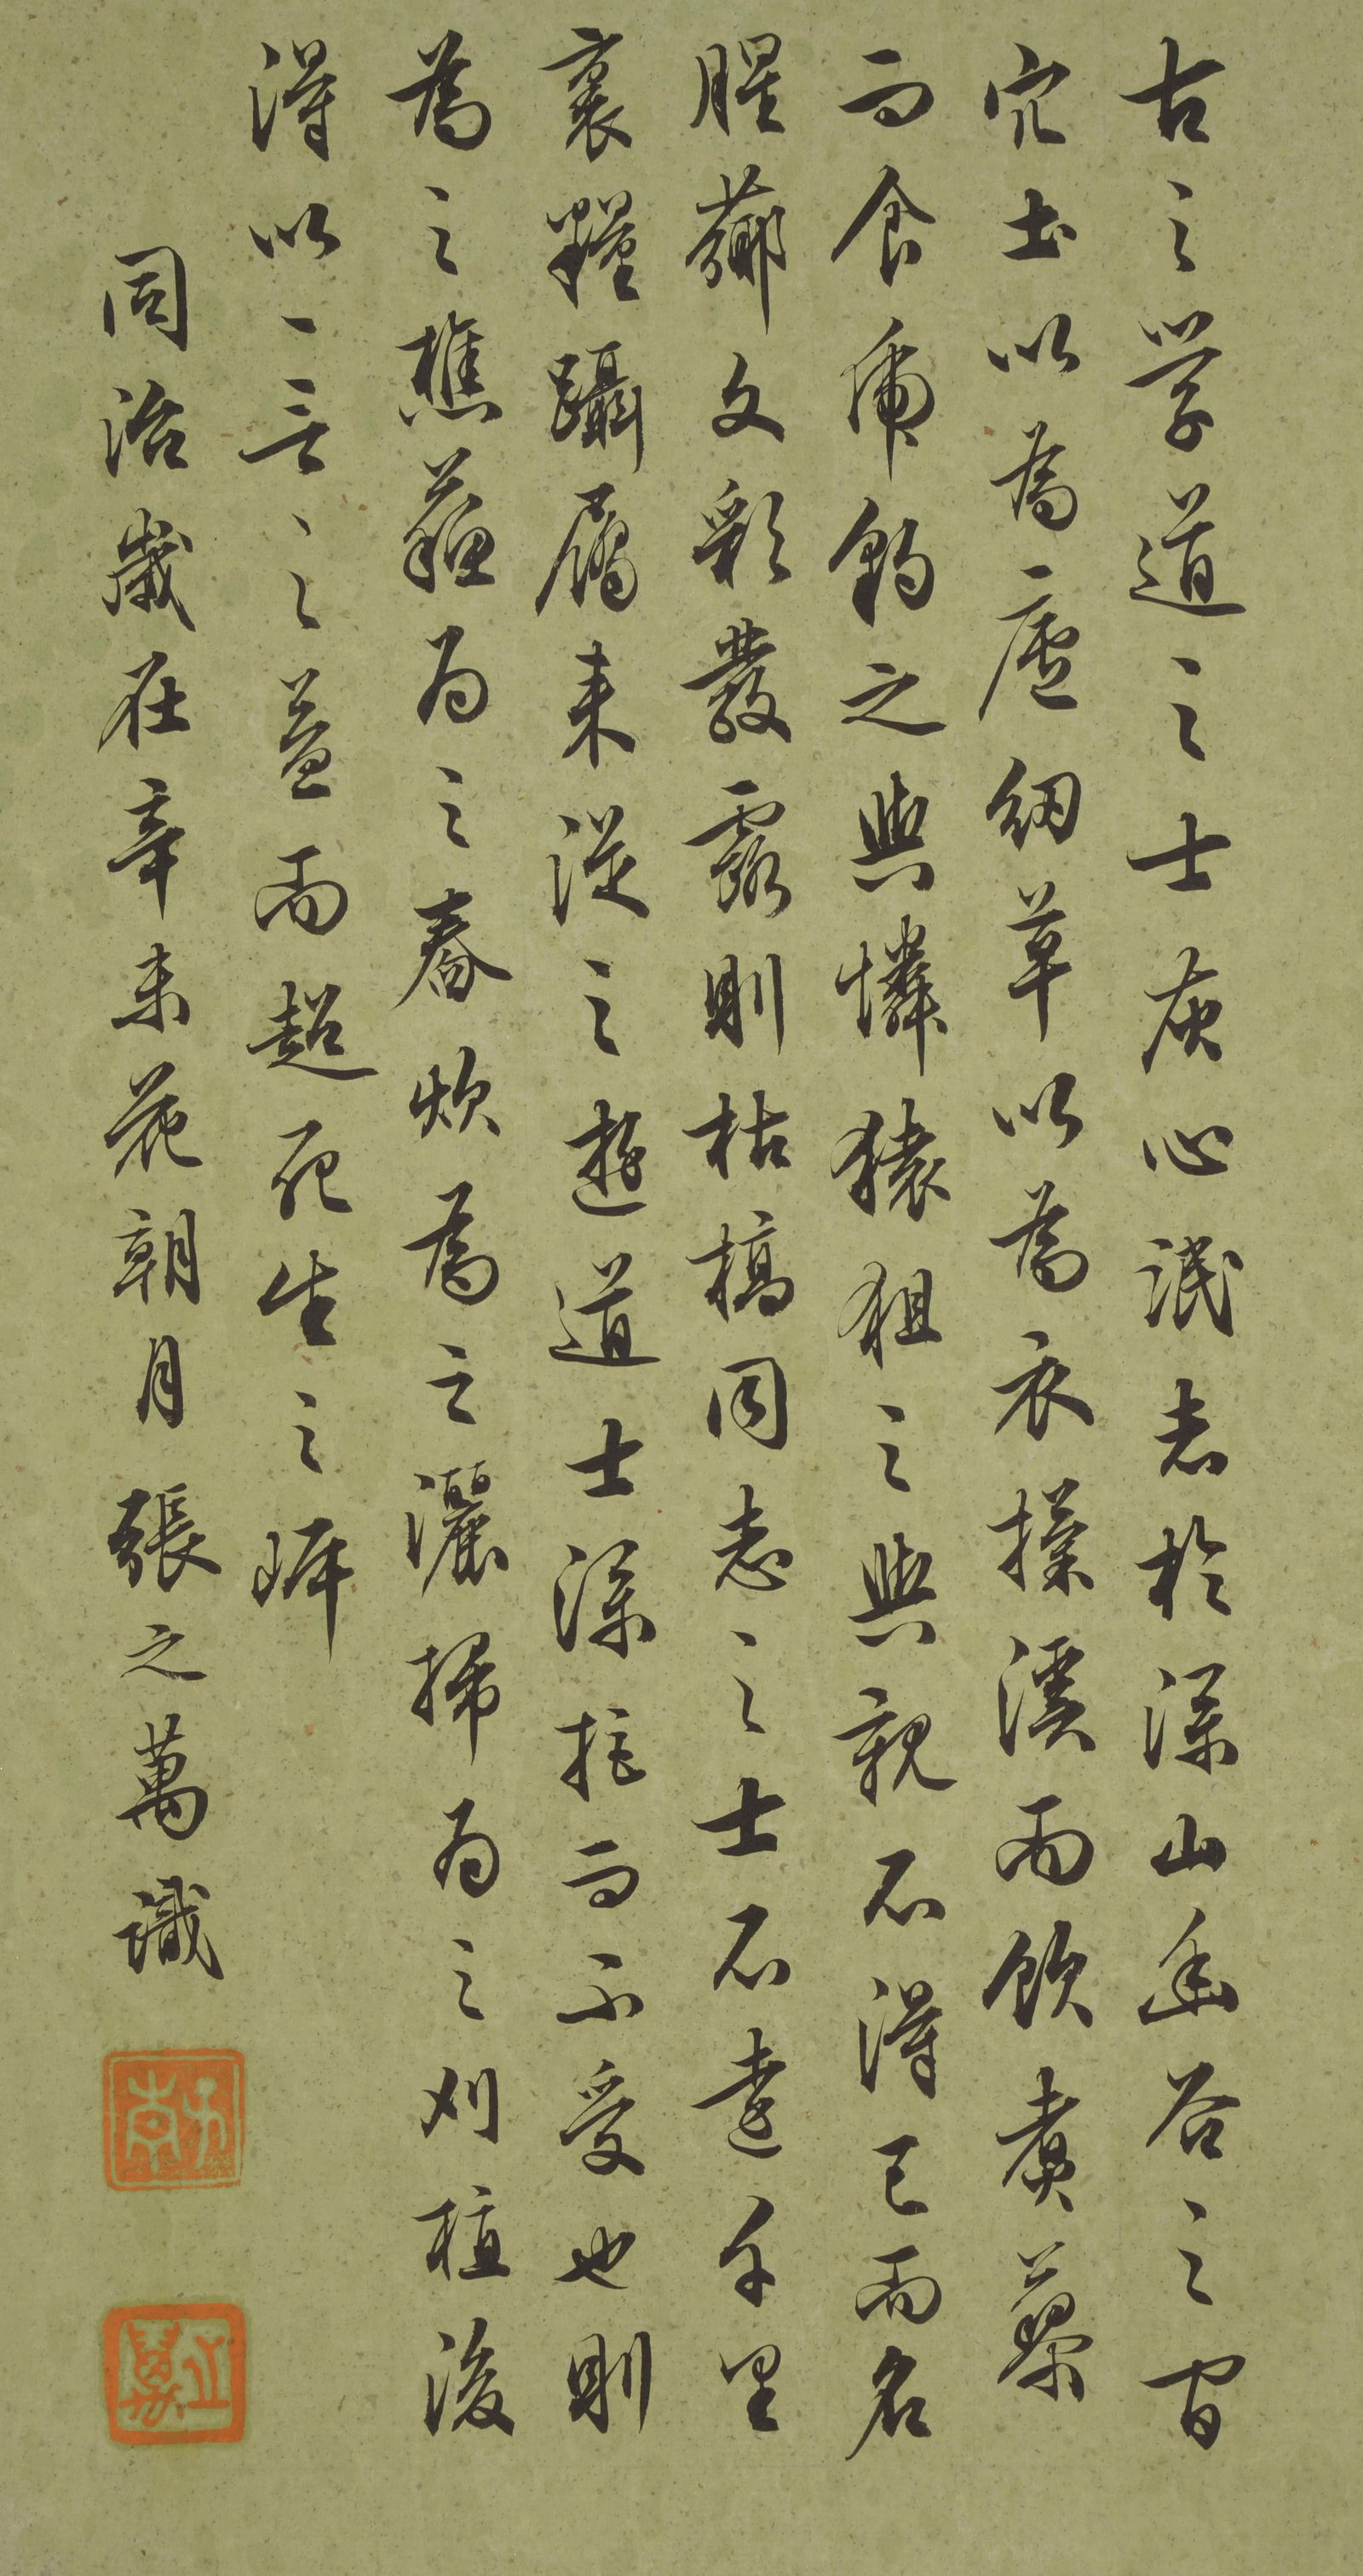 古之学道之士灰心泯志於深山幽谷之間
穴土以為廬紉草以為衣掬溪而飲煮藜
而食虎豹之與憐猿狙之與親不得已而名
腥薌文彩發露則枯槁同志之士不遠千里
裹糧躡屩来從之遊道士深拒而不受也則
為之樵蘇为之舂炊為之灑掃为之刈植後
得以一言之益而超死生之岸
同治歲在辛未花朝月張之萬識